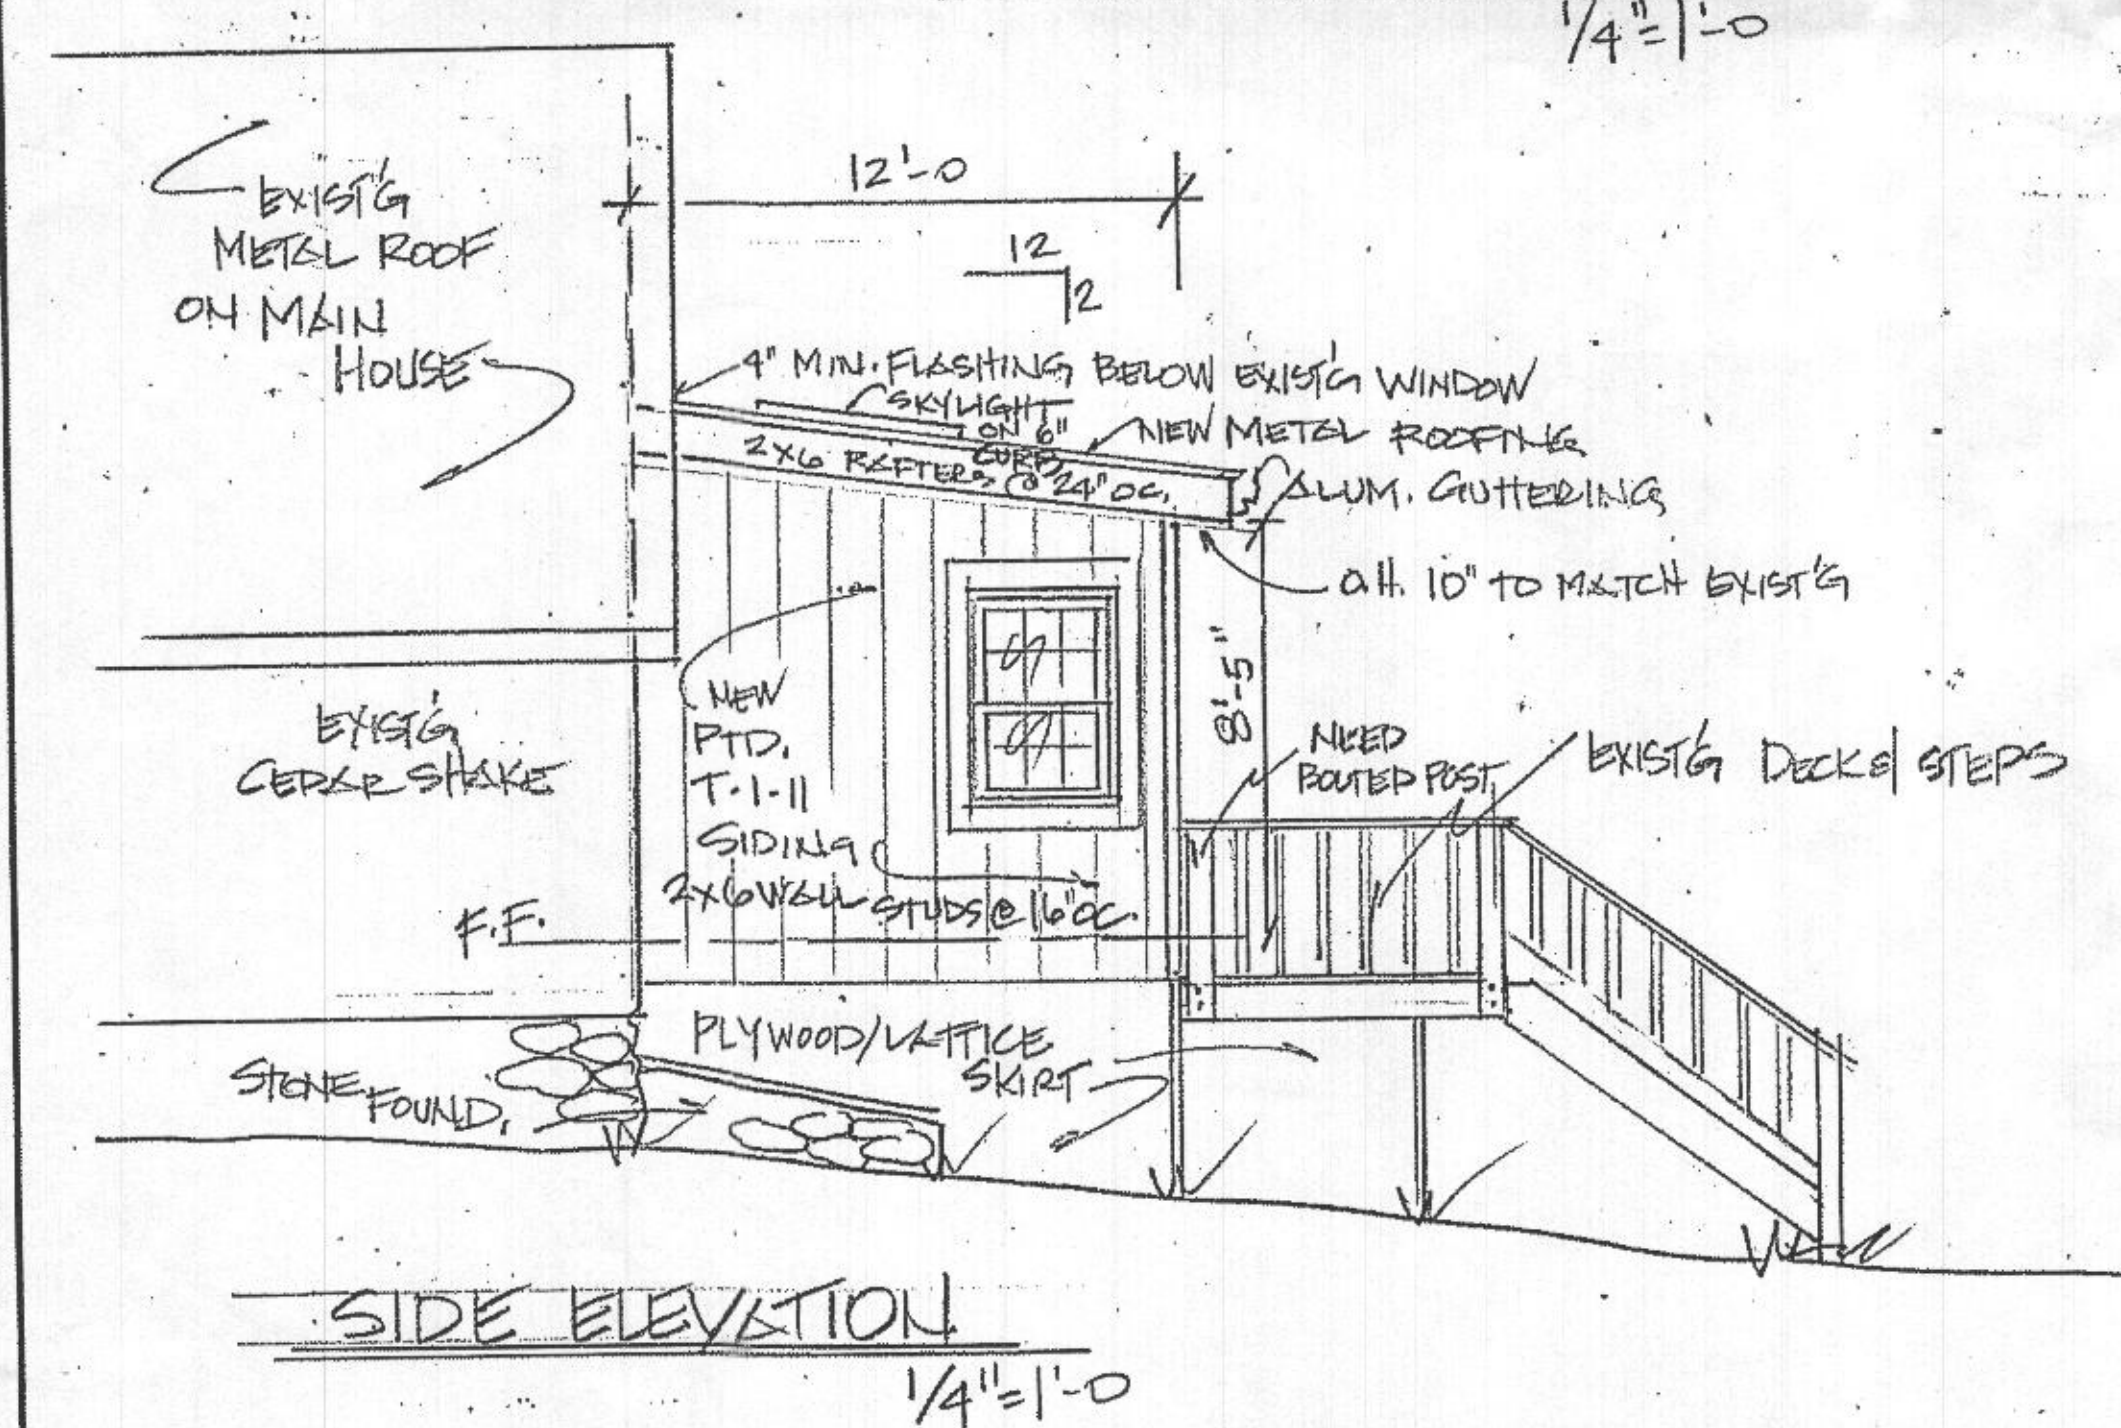 1/4"=1'-0
EXIST'G
METAL ROOF
ON MAIN
HOUSE
12'-0
12
2
4" MIN. FLASHING BELOW EXIST'G WINDOW
SKYLIGHT
ON 6"
CURB
NEW METAL ROOFING
2X6 RAFTERS @ 24" OC.
ALUM. GUTTERING
O.H. 10" TO MATCH EXIST'G
8'-5"
NEW
PTD.
T-1-11
SIDING
2X6 WALL STUDS @ 16" OC.
EXIST'G
CEDAR SHAKE
NEED
BOLTED POST
EXIST'G DECK & STEPS
F.F.
PLYWOOD/LATTICE
SKIRT
STONE
FOUND.
SIDE ELEVATION
1/4"=1'-0